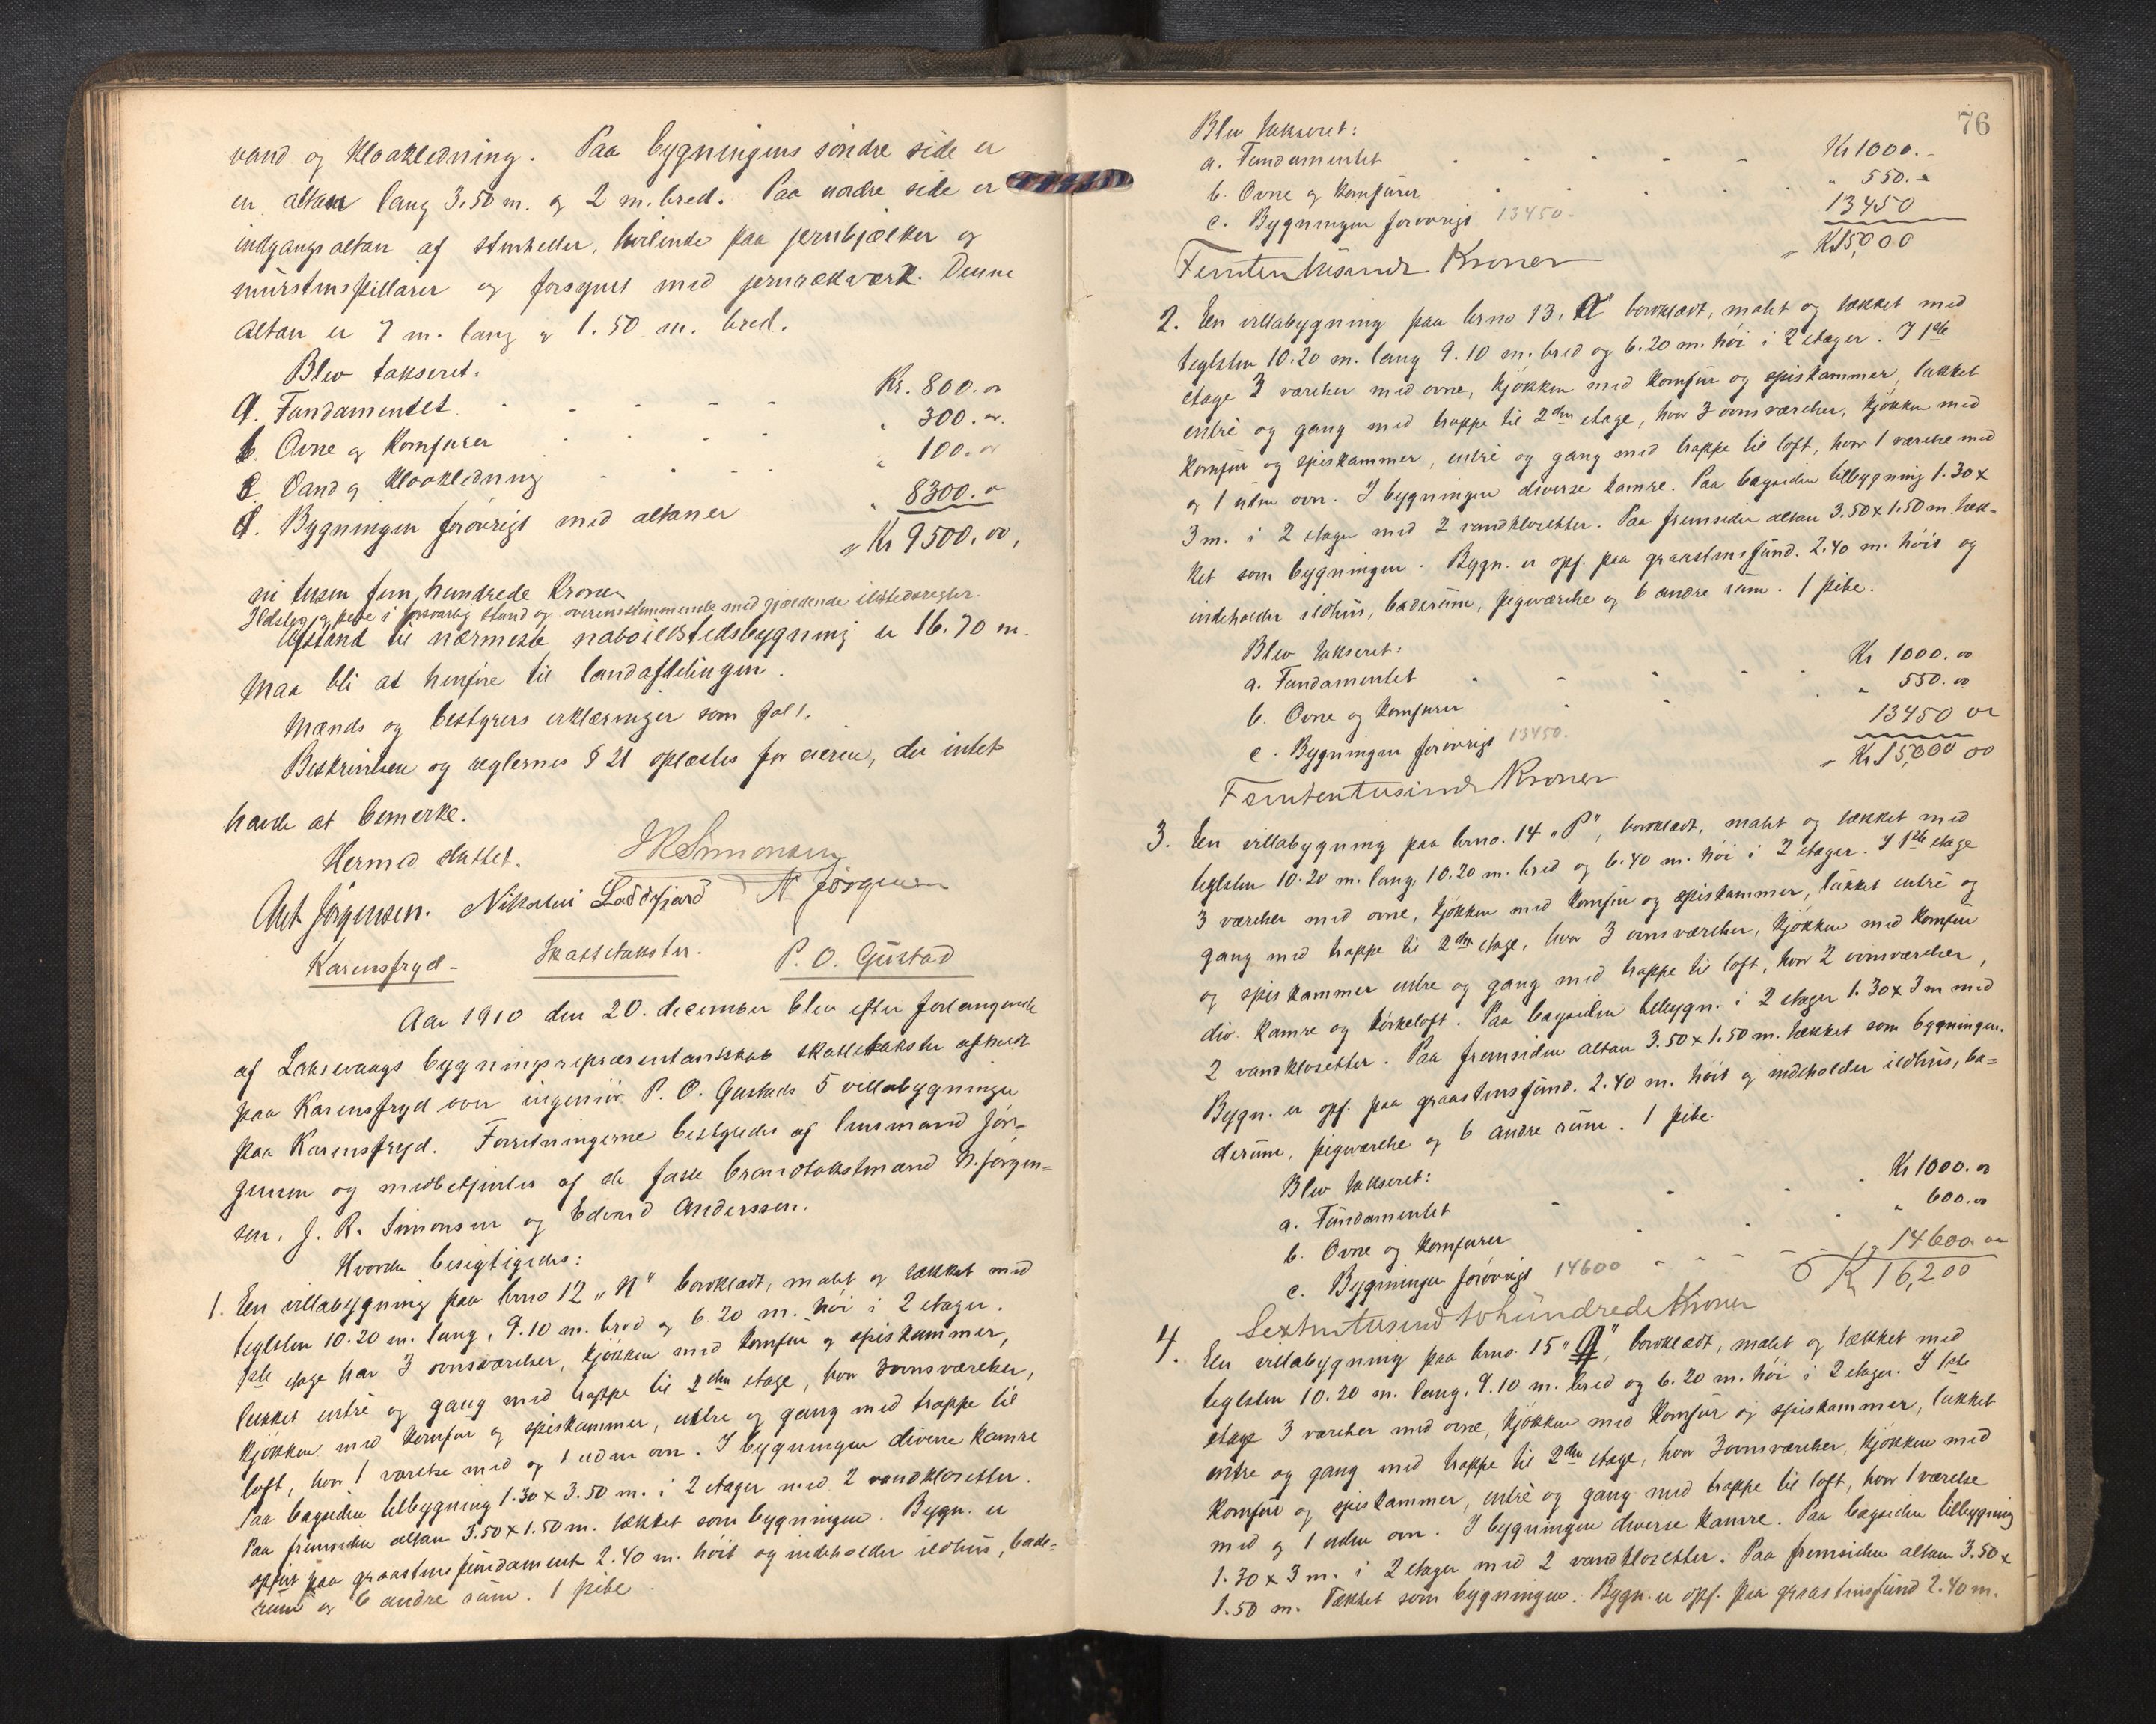 vand og kloakledning. Paa bygningens söndre side er
en altan lang 3.50 m. og 2 m. bred. Paa nordre side er
indgangsaltan af stenheller, hvilende paa jernbjælker og
murstenspillarer og forsynet med jernrækværk. Denne
altan er 7 m. lang og 1.50 m. bred.
Blev takseret.
a. Fundamentet Kr. 800.00
b. Ovne og komfurer " 300.00
c. Vand og kloakledning " 100.00
d. Bygningen forövrigt med altaner " 8300.00
Kr 9500.00,
ni tusen fem hundrede Kroner
Ildsteg og pibe i forsvarlig stand og overensstemmende med gjældende ildstedsregler.
Afstand til nærmeste naboildstedsbygning er 16.70 m.
Maa bli at henföre til landafdelingen.
Mænds og bestyrers erklæringer som fol 1.
Beskrivelsen og reglernes § 21 oplæstes for eieren, der intet
havde at bemerke.
Hermed sluttet.
J R Simonsen
Ant Jörgensen. Nikolai Loddefjord N Jörgensen
Karensfryd - Skattetakster. P. O. Gustad
Aar 1910 den 20. december blev efter forlangende
af Laksevaags bygningsrepræsentantskab skattetakster afholdt
paa Karensfryd over ingeniör P. O. Gustads 5 villabygninger
paa Karensfryd. Forretningerne bestyredes af lensmand Jör-
gensen og medbetjentes af de faste brandtakstmænd N. Jörgen=
sen, J. R. Simonsen og Edvard Anderssen.
Hvorda besigtigedes:
1. En villabygning paa brno 12 "N" bordklædt, malet og tækket med
teglsten 10.20 m. lang, 9.10 m. bred og 6.20 m. höi i 2 etager.
1ste etage har 3 ovnsværelser, kjökken med komfur og spiskammer,
lukket entré og gang med trappe til 2den etage, hvor 3 ovnsværelser,
kjökken med komfur og spiskammer, entre og gang med trappe til
loft, hvor 1 værelse med og 1 uden ovn. I bygningen diverse kamre
Paa bagsiden tilbygning 1.30 x 3.50 m. i 2 etager med 2 vandklosetter.
Paa fremsiden altan 3.50 x 1.50 m. tækket som bygningen. Bygn. er
opfört paa graastensfundament 2.40 m. höit og indeholder ildhus, bade=
rum og 6 andre rum. 1 pibe.
76
Blev takseret:
a. Fundamentet Kr 1000.-
b. Ovne og komfurer " 550.-
c. Bygningen forövrigt 13450.- 13450
" Kr 15,000
Femten tusinde Kroner
2. En villabygning paa brno 13. "O" bordklædt, malet og tækket med
teglsten 10.20 m. lang 9.10 m. bred og 6.20 m. höi i 2 etager. I 1ste
etage 3 værelser med ovne, kjökken med komfur og spiskammer, lukket
entré og gang med trappe til 2den etage, hvor 3 ovnsværelser, kjökken med
komfur og spiskammer, entré og gang med trappe til loft, hvor 1 værelse med
og 1 uden ovn. I bygningen diverse kamre. Paa bagsiden tilbygning 1.30 x
3 m. i 2 etager med 2 vandklosetter. Paa fremsiden altan 3.50 x 1.50 m. tæk=
ket som bygningen. Bygn. er opf. paa graastensfund. 2.40 m. höit og
indeholder ildhus, baderum, pigeværelse og 6 andre rum. 1 pibe.
Blev takseret:
a. Fundamentet Kr 1000.00
b. Ovne og komfurer " 550.00
c. Bygningen forövrigt 13450. 13450 00
" Kr 15,000 00
Femtentusinde Kroner
3. En villabygning paa brno. 14 "P", bordklædt, malet og tækket med
teglsten 10.20 m. lang, 10.20 m. bred og 6.40 m. höi i 2 etager. I 1ste etage
3 værelser med ovne, kjökken med komfur og spiskammer, lukket entré og
gang med trappe til 2den etage, hvor 3 ovnsværelser, kjökken med komfur
og spiskammer entre og gang med trappe til loft, hvor 2 ovnsværelser,
div. kamre og törkeloft. Paa bagsiden tilbygn. i 2 etager 1.30 x 3 m med
2 vandklosetter. Paa fremsiden altan 3.50 x 1.50 m. tækket som bygningen.
Bygn. er opf. paa graastensfund. 2.40 m. höit og indeholder ildhus, ba=
derum, pigeværelse og 6 andre rum. 1 pibe.
Blev takseret:
a. Fundamentet Kr 1000.00
b. Ovne og komfurer " 600.00
c. Bygningen forövrigt 14600 14600.00
Kr 16,200
Sextentusind tohundrede Kroner
4. En villabygning paa brno. 15 "Q", bordklædt, malet og tækket med
teglsten 10.20 m. lang, 9.10 m. bred og 6.20 m. höi i 2 etager. I 1ste
etage 3 værelser med ovne, kjökken med komfur og spiskammer, lukket
entre og gang med trappe til 2den etage, hvor 3 ovnsværelser, kjökken med
komfur og spiskammer, entré og gang med trappe til loft, hvor 1 værelse
med og 1 uden ovn. I bygningen diverse kamre. Paa bagsiden tilbygning
1.30 x 3 m. i 2 etager med 2 vandklosetter. Paa fremsiden altan 3.50 x
1.50 m. Tækket som bygningen. Bygn. er opf. paa graastensfund 2.40 m.